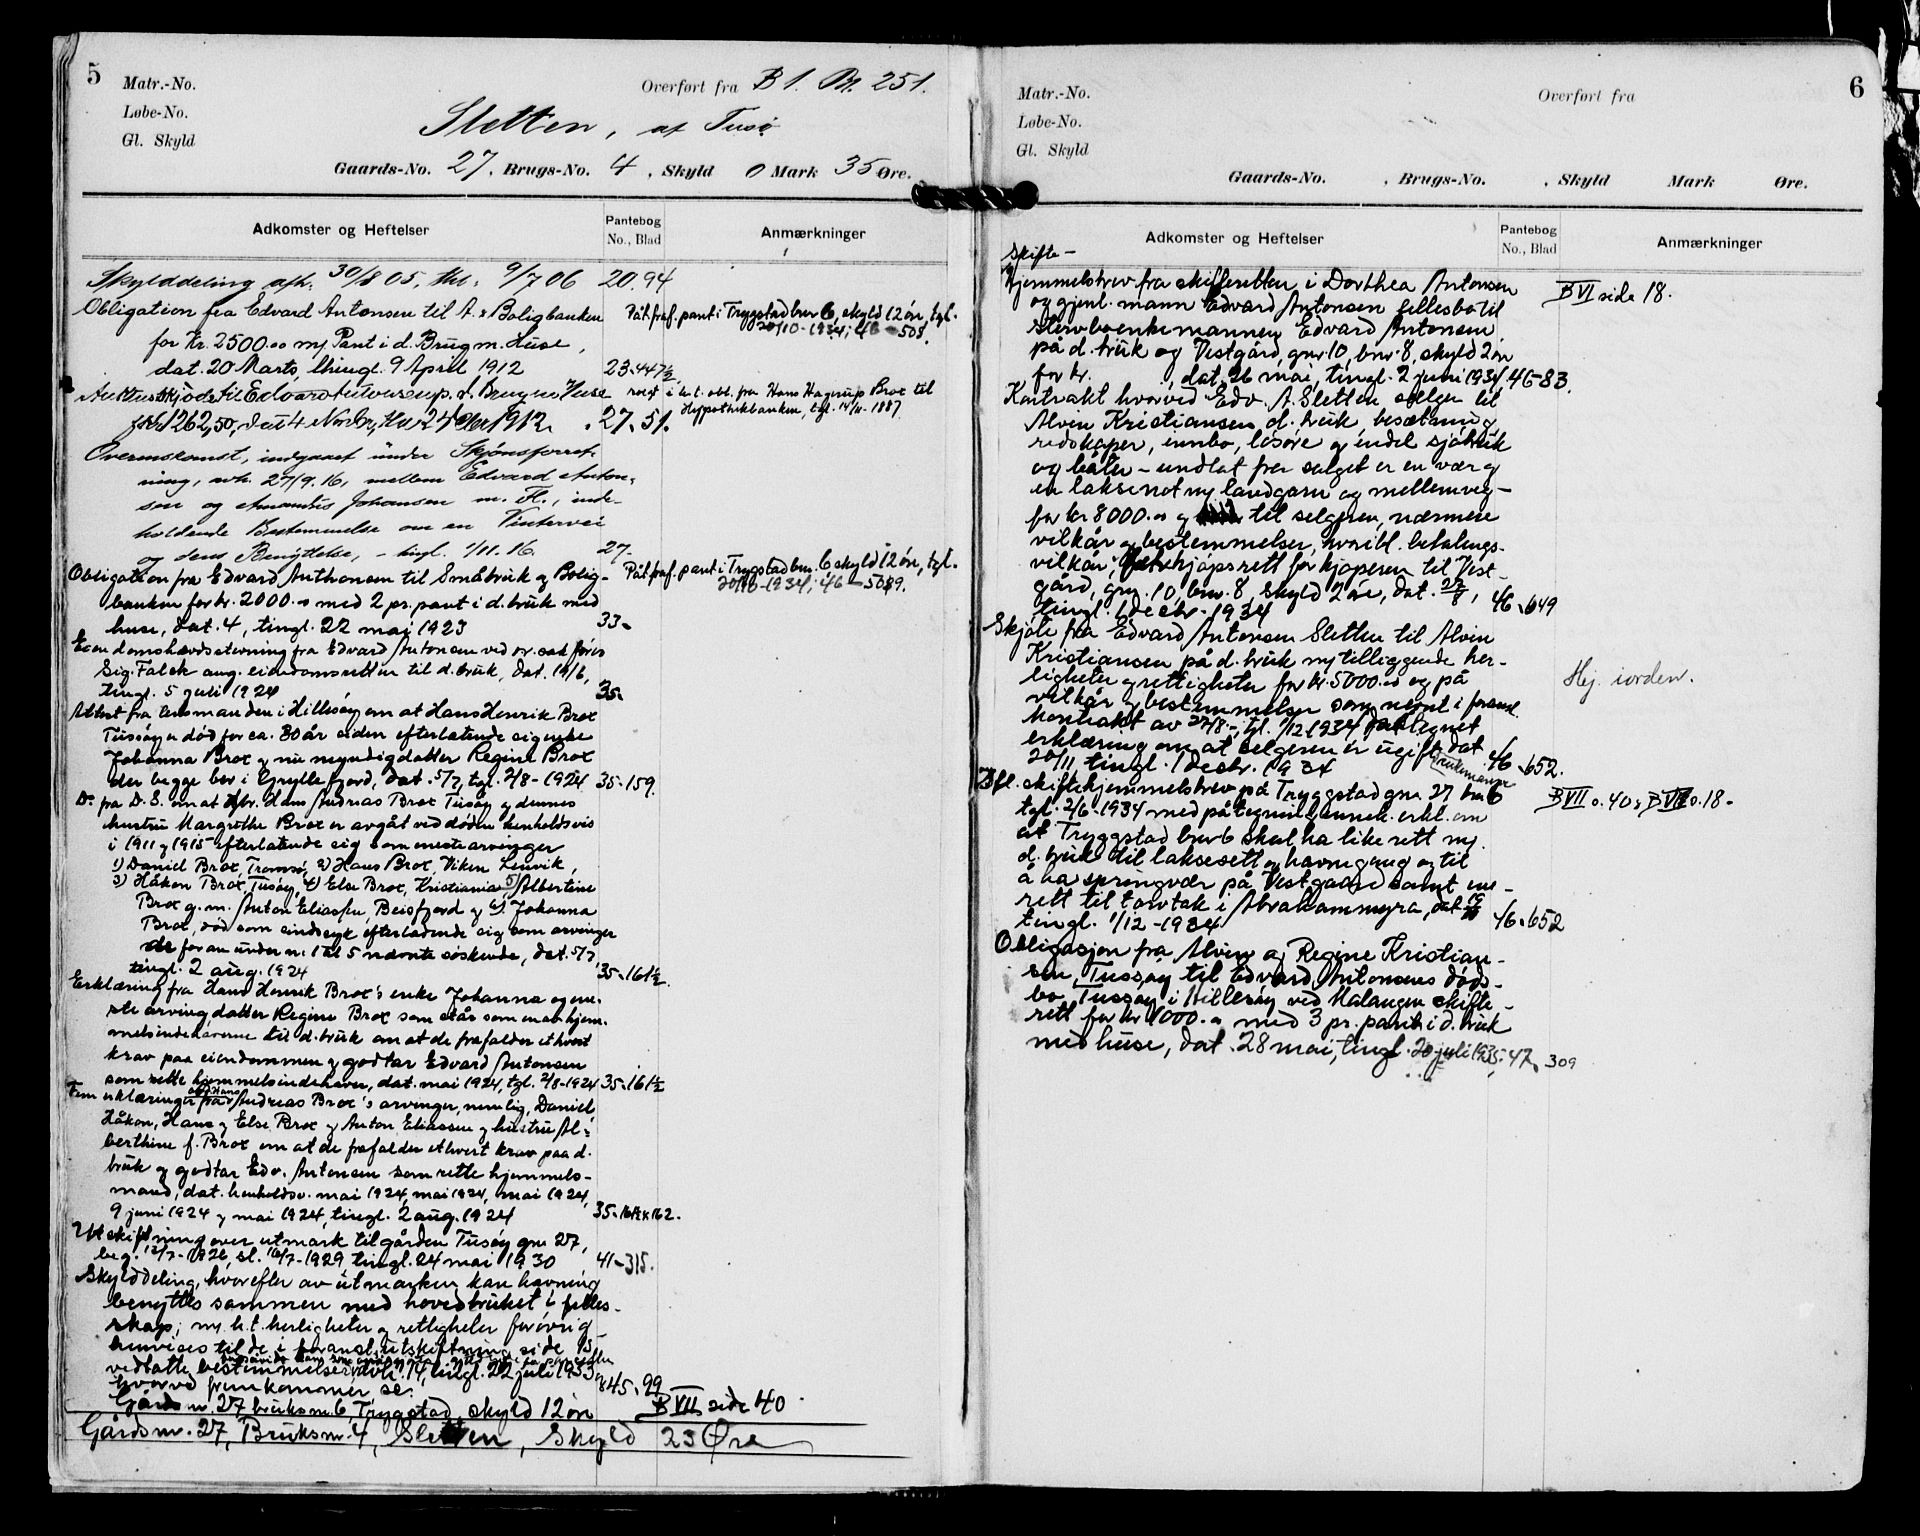 5
Matr.-No.
Overført fra B 1. Bl. 251.
Løbe-No.
Sletten, af Tusø
Gl. Skyld
Gaards-No. 27, Brugs-No. 4, Skyld 0 Mark 35 Øre.
Adkomster og Heftelser
Pantebog No., Blad
Anmærkninger
Skylddeling afh. 30/8 05, thl. 9/7 06 20.94
Obligation fra Edvard Antonsen til A. & Boligbanken
for Kr. 2500.00 m/ Pant i d. Brug m. Huse,
dat. 20 Marts, thingl. 9 April 1912 23.447½
Påt. fraf. pant i Trygstad bnr 6, skyld 12 øre, tgl.
20/10-1934; 46-508.
Auktionsskjøde til Edvard Antonsen p. d. Brug m/ Huse
for kr 1262,50, dat 4 Novbr, thl 24 1912. 27.51.
i h.t. obl. fra Hans Hagerup Brox til
Hypothekbanken, tgl. 14/11-1887
Overenskomst, indgaaet under Skjønsforret-
ning, avh. 27/9.16, mellem Edvard Anton-
sen og Amandus Johansen m. Fl., inde-
holdende Bestemmelse om en Vintervei
og dens Benyttelse, - tingl. 1/11.16. 27.
Obligation fra Edvard Anthonsen til Småbruk og Bolig-
banken for kr. 2000.00 med 2 pr. pant i d. bruk med
huse, dat. 4, tingl. 22 mai 1923 33-
Påt. fraf. pant i Trygstad bnr. 6 skyld 12 øre, tgl.
20/10-1934; 46-509.
Eiendomshævdsstevning fra Edvard Antonsen ved or. sakfører
Sig. Falck ang. eiendomsretten til d. bruk, dat. 14/6,
tingl. 5 juli 1924 35-
Attest fra lensmanden i Hillesøy om at Hans Henrik Brox
Tussøy er død for ca. 30 år siden efterlatende sig enke
Johanna Brox og nu myndig datter Regine Brox
der begge bor i Gryllefjord, dat. 5/7, tgl. 2/8-1924 35-159.
Do fra D. S. om at gbr. Hans Andreas Brox Tusøy og dennes
hustru Margrethe Brox er avgåt ved døden henholdsvis
i 1911 og 1915 efterlatende sig som eneste arvinger
1) Daniel Brox, Tromsø, 2) Hans Brox, Viken Lenvik,
3) Håkon Brox, Tusøy, 4) Else Brox, Kristiania, 5) Albertine
Brox g. m. Anton Eliassen, Beisfjord og 6) Johanna
Brox, død som sindssyk efterladende sig som arvinger
de foran under nr. 1 til 5 nævnte søskende, dat. 5/7,
tingl. 2 aug. 1924 35-161½.
Erklæring fra Hans Henrik Brox's enke Johanna og ene-
ste arving datter Regine Brox som står som en av hjem-
melsindehaverne til d. bruk om at de frafalder ethvert
krav paa eiendommen og godtar Edvard Antonsen
som rette hjemmelsindehaver, dat. mai 1924, tgl. 2/8-1924 35-161½
Fem erklæringer fra Hans Andreas Brox's arvinger, nemlig, Daniel
Håkon, Hans og Else Brox og Anton Eliassen og hustru Al-
berthine f. Brox om at de frafalder ethvert krav paa d.
bruk og godtar Edv. Antonsen som rette hjemmels-
mand, dat. henholdsv. mai 1924, mai 1924, mai 1924,
9 juni 1924 og mai 1924, tingl. 2 aug. 1924 35-161½ & 162.
Utskiftning over utmark til gården Tusøy gnr. 27,
beg. 12/7-1926, sl. 16/7-1929, tingl. 24 mai 1930 41-315.
Skylddeling, hvorefter av utmarken kan havning
benyttes sammen med hovedbruket i felles-
skap; m/ h.t. herligheter og rettigheter forøvrig
henvises til de i foranst. utskiftning side 13
vedtatte bestemmelser, tingl. 22 juli 1933,
hvorved fremkommer se: 45-99
Gårdsnr. 27 bruksnr. 6, Trygstad, skyld 12 øre B VII side 40
Gårdsnr. 27, Bruksnr. 4, Sletten, Skyld 23 Øre
6
Matr.-No.
Overført fra
Løbe-No.
Gl. Skyld
Gaards-No. , Brugs-No. , Skyld Mark Øre.
Adkomster og Heftelser
Pantebog No., Blad
Anmærkninger
Skifte-
hjemmelsbrev fra skifteretten i Dorthea Antonsen
og gjenl. mann Edvard Antonsen fellesbo til
stervboenkemannen Edvard Antonsen
på d. bruk og Vestgård, gnr. 10, bnr. 8, skyld 2 øre
for kr. , dat. 26 mai, tingl. 2 juni 1934, 46-83.
B VI side 18.
Kontrakt hvorved Edv. A. Sletten selger til
Alvin Kristiansen d. bruk, besætning,
redskaper, innbo, løsøre og endel sjøbruk
og båter - undtat fra salget er en vær og
en laksenot m/ landgarn og mellemveg -
for kr 8000.00 og til selgeren, nærmere
vilkår og bestemmelser, hvoribl. betalings-
vilkår, forkjøpsrett for kjøperen til Vest-
gård, gnr. 10, bnr. 8, skyld 2 øre, dat. 27/8,
tingl. 1 decbr. 1934 46-649
Skjøte fra Edvard Antonsen Sletten til Alvin
Kristiansen på d. bruk m/ tilliggende her-
ligheter og rettigheter for kr. 5000.00 og på
vilkår og bestemmelser som nevnt i foranst.
kontrakt av 27/8-, tgl. 1/12-1934 påtegnet
erklæring om at selgeren er ugift, dat
20/11, tingl. 1 decbr. 1934 46-652.
Hej. i orden.
enkemann
Bfl. skiftehjemmelsbrev på Tryggstad gnr. 27 bnr 6
tgl. 2/6-1934 med påtegnet og annek. erkl. om
at Tryggstad bnr 6 skal ha like rett m/
d. bruk til laksesett og havnegang og til
å ha springvær på Vestgaard samt ene-
rett til torvtak i Abrahammyra, dat
tingl. 1/12-1934 46-652
B VII s. 40 & B VI s. 18-
Obligasjon fra Alvin og Regine Kristian-
sen, Tussøy til Edvard Antonsens døds-
bo, Tussøy i Hillesøy ved Malangen skifte-
rett for kr 1000.00 med 3 pr. pant i d. bruk
med huse, dat. 28 mai, tingl. 20 juli 1935. 47, 309